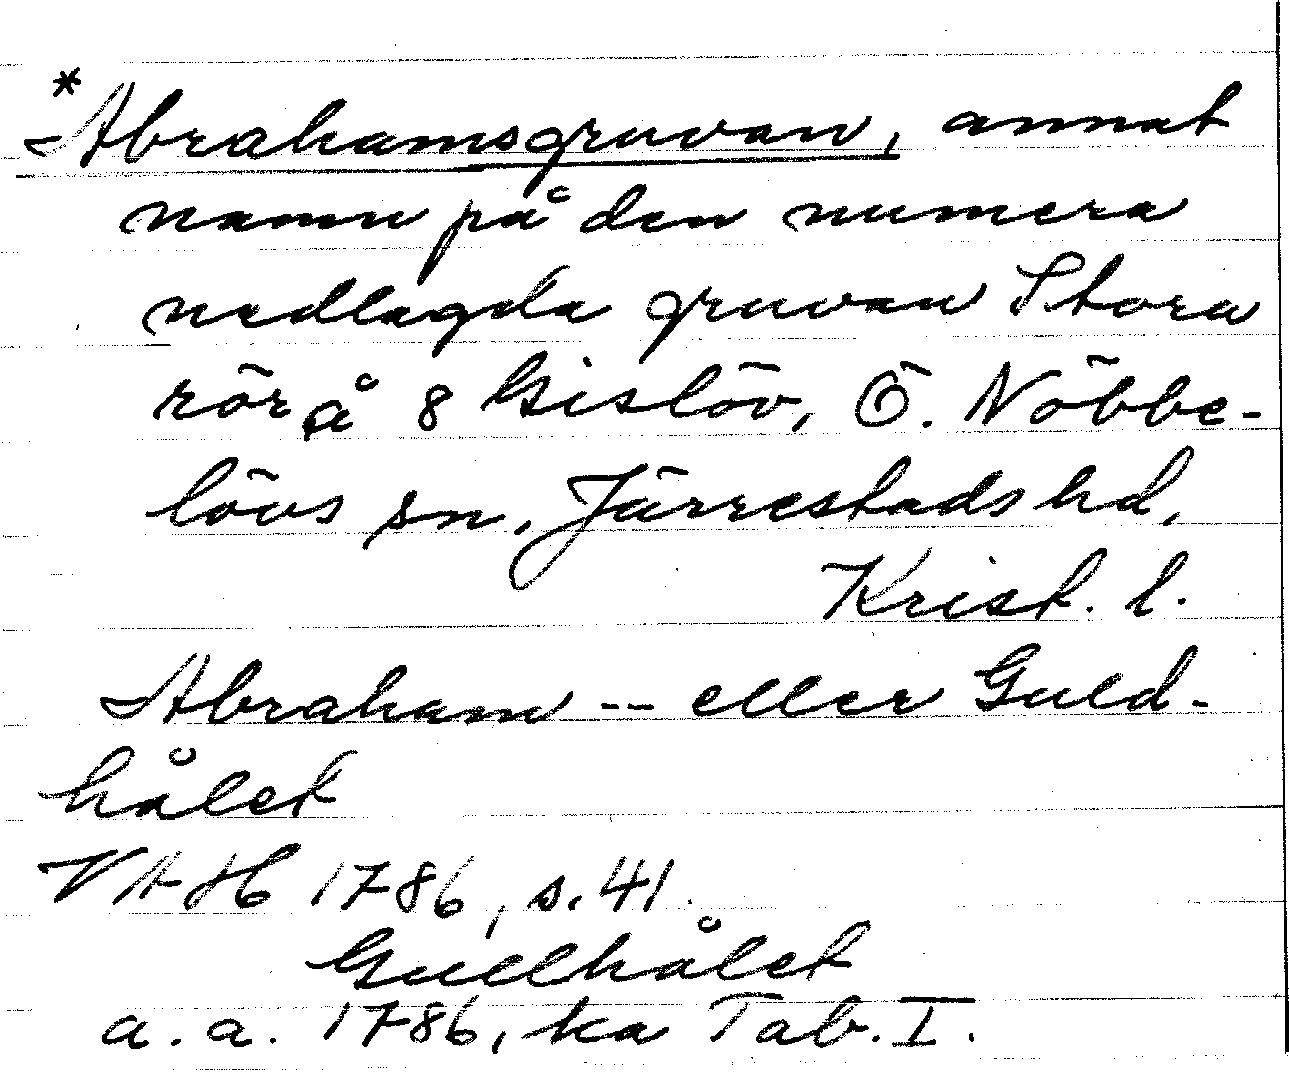 *Abrahamsgruvan, annat
namn på den numera
nedlagda gruvan Stora
rör å 8 Gislöv, Ö. Nöbbe-
lövs sn. Järrestads hd,
Krist. l.
Abraham -- eller Guld-
hålet
VAH 1786, s. 41.
Gullhålet
a. a. 1786, ka Tab. I.